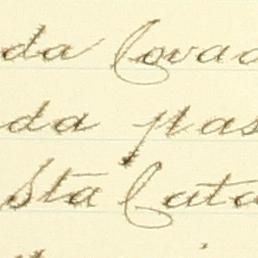 da Cova
da pas
Sta Cata